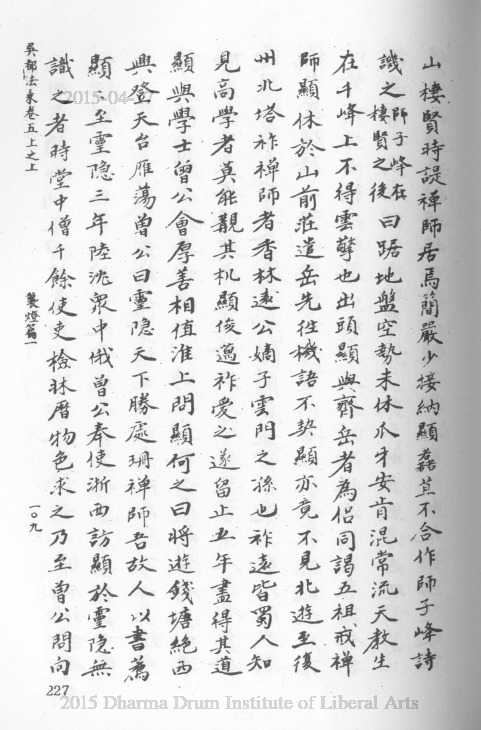 山棲賢時諟禪師居焉簡嚴少接納顯藞苴不合作師子峰詩
譏之師子峰在棲賢之後曰踞地盤空勢未休爪牙安肯混常流天教生
在千峰上不得雲擎也出頭顯與齊岳者為侶同謁五祖戒禪
師顯休於山前莊遣岳先徃機語不契顯亦竟不見北遊至復
州北塔祚禪師者香林遠公嫡子雲門之孫也祚遠皆蜀人知
見高學者莫能覯其机顯俊邁祚愛之遂留止五年盡得其道
顯與學士曾公會厚善相值淮上問顯何之曰將遊錢塘絕西
興登天台雁蕩曾公曰靈隐天下勝處珊禪師吾故人以書薦
顯顯至靈隐三年陸沈眾中俄曾公奉使浙西訪顯於靈隐無
識之者時堂中僧千餘使吏檢牀厯物色求之乃至曾公問向
吳都法乘卷五上之上
襲燈篇一
一〇九
227
2015-04
2015 Dharma Drum Institute of Liberal Arts